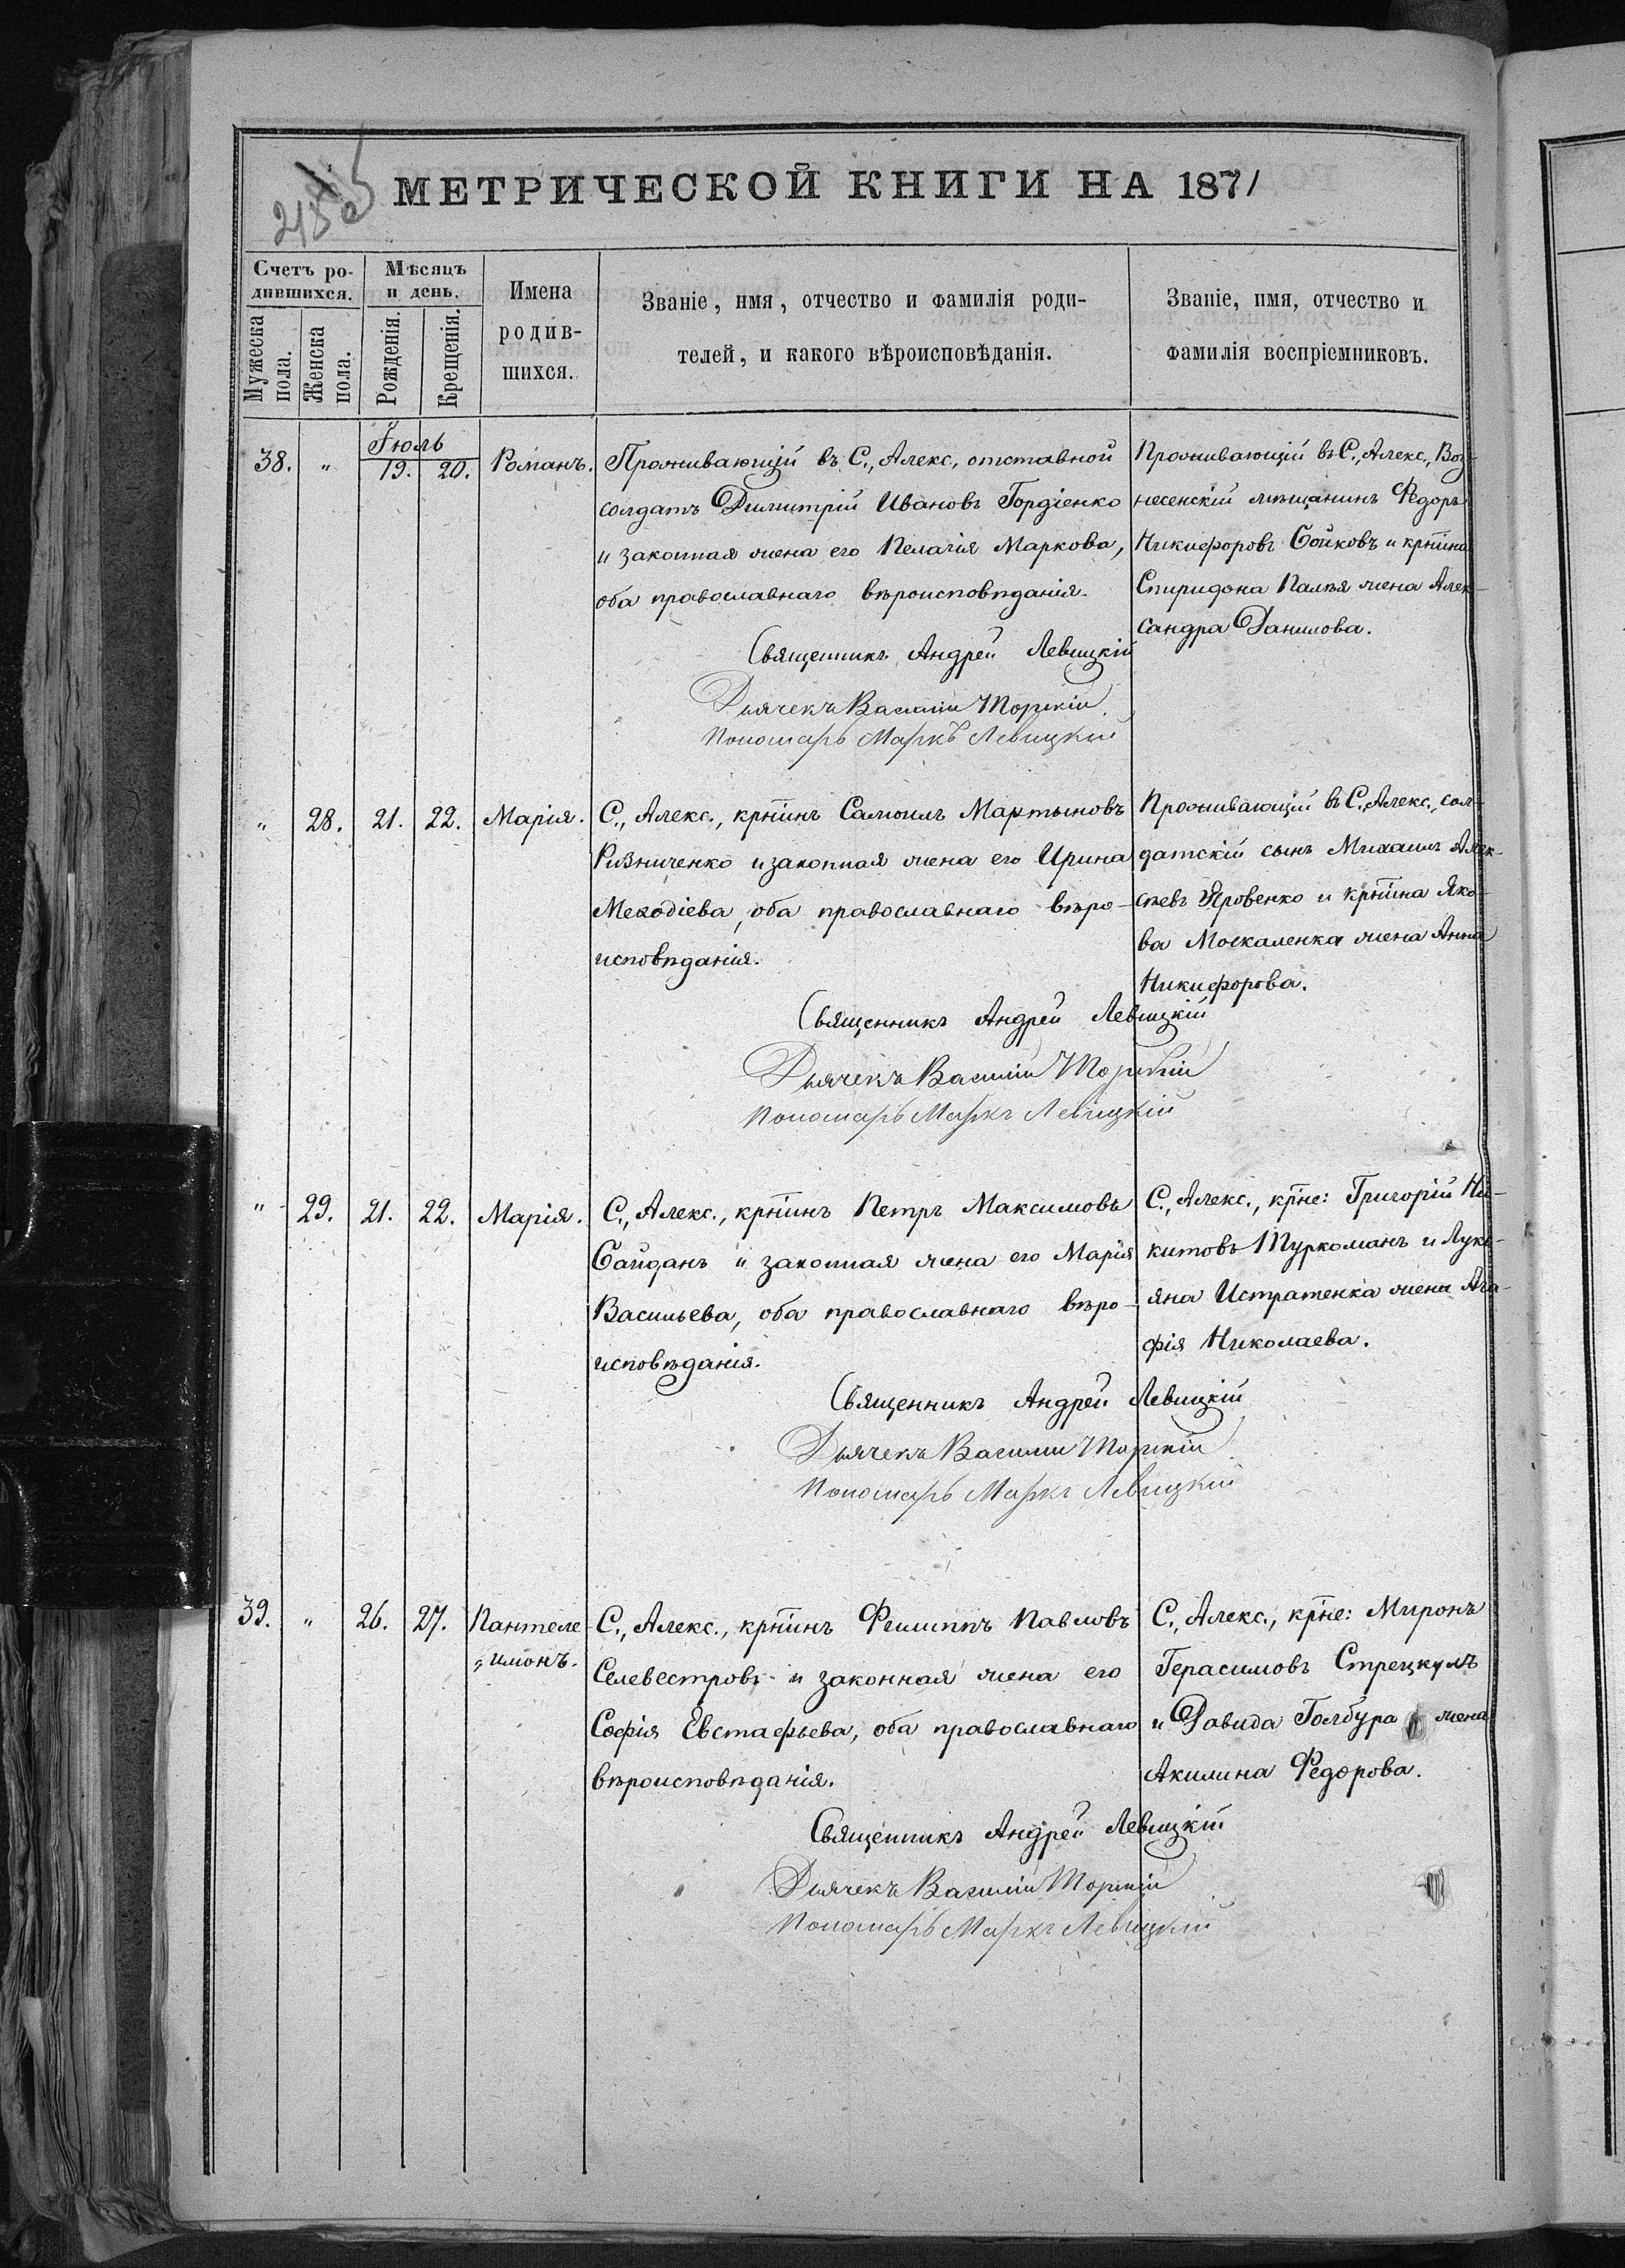 МЕТРИЧЕСКОЙ КНИГИ НА 1871
Счетъ ро-
дившихся.
Мѣсяцъ
и день.
Мужеска
пола.
Женска
пола.
Рожденія.
Крещенія.
Имена
родив-
шихся.
Званіе, имя, отчество и фамилія роди-
телей, и какого вѣроисповѣданія.
Званіе, имя, отчество и
фамилія воспріемниковъ.
Іюль
38. " 19. 20. Романъ.
Проживающій въ С., Алекс., отставной
солдатъ Димитрій Ивановъ Гордіенко
и законная жена его Пелагія Маркова,
оба православнаго вѣроисповѣданія.
Проживающій въ С., Алекс., Воз-
несенскій мѣщанинъ Ѳедоръ
Никифоровъ Бойковъ и крѣтіна
Спиридона Палѣя жена Алек-
сандра Данилова.
Священникъ Андрей Левицкій
Дьячекъ Василій Торскій
Пономарь Маркъ Левицкій
" 28. 21. 22. Марія.
С., Алекс., крѣтінъ Самоилъ Мартыновъ
Ризниченко и законная жена его Ирина
Меѳодіева, оба православнаго вѣро-
исповѣданія.
Проживающій въ С. Алекс., сол-
датскій сынъ Михаилъ Алек-
сѣевъ Яровенко и крѣтіна Яко-
ва Москаленка жена Анна
Никифорова.
Священникъ Андрей Левицкій
Дьячекъ Василій Торскій
Пономарь Маркъ Левицкій
" 29. 21. 22. Марія.
С., Алекс., крѣтінъ Петръ Максимовъ
Сайданъ и законная жена его Марія
Васильева, оба православнаго вѣро-
исповѣданія.
С., Алекс., крѣне: Григорій Ни-
китовъ Туркоманъ и Лукь-
яна Истратенка жена Ага-
фія Николаева.
Священникъ Андрей Левицкій
Дьячекъ Василій Торскій
Пономарь Маркъ Левицкій
39. " 26. 27. Пантеле-
"имонъ.
С., Алекс., крѣтінъ Филиппъ Павловъ
Селевестровъ и законная жена его
Софія Евстафьева, оба православнаго
вѣроисповѣданія.
С., Алекс., крѣне: Миронъ
Герасимовъ Стрецкулъ
и Давида Голбура жена
Акилина Ѳедорова.
Священникъ Андрей Левицкій
Дьячекъ Василій Торскій
Пономарь Маркъ Левицкій